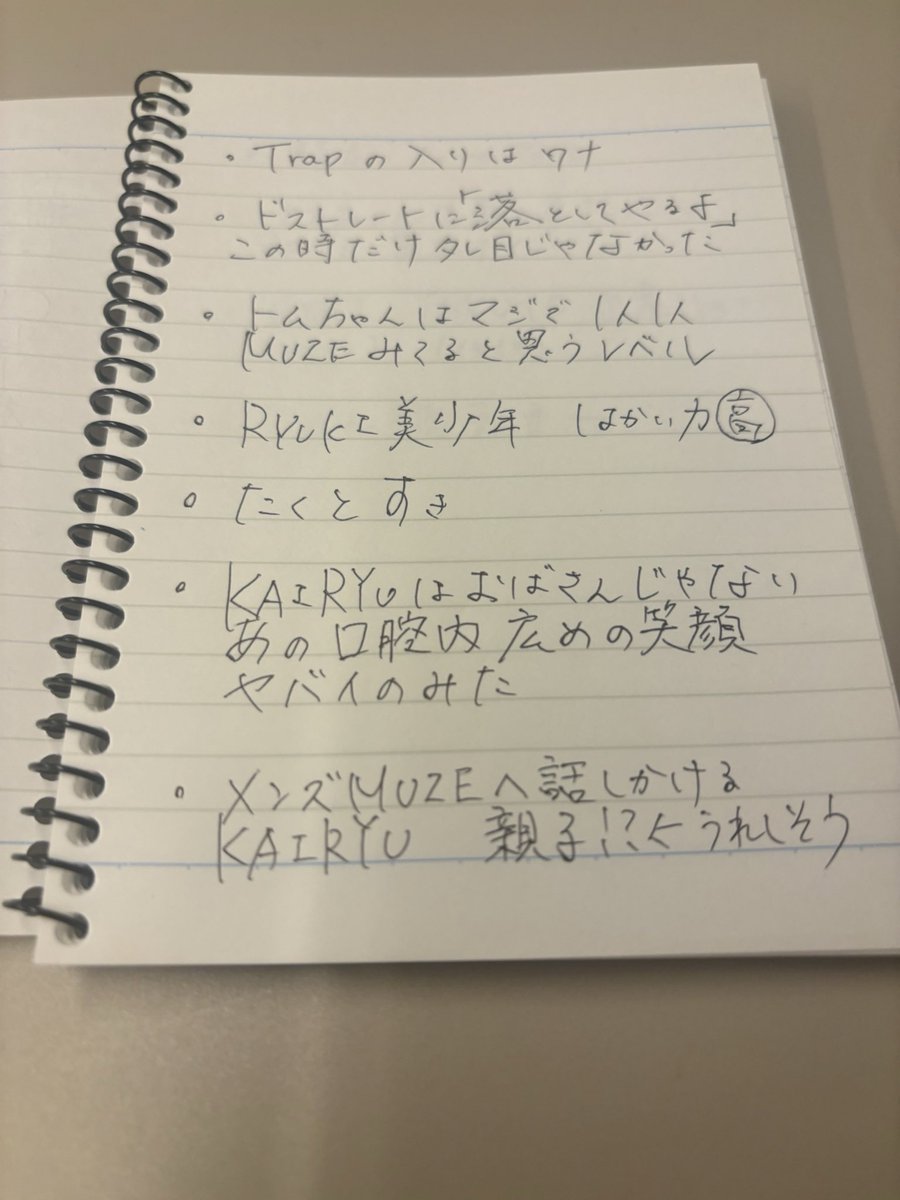 ・Trapの入りはワナ
・ドストレートに「落としてやるよ」
この時だけタレ目じゃなかった
・トムちゃんはマジで
MUZEみてると思うレベル
・RYUKI美少年 はかい力高
・たくとすき
・KAIRYUはおばさんじゃない
あの口腔内広めの笑顔
ヤバイのみた
・メンズMUZEへ話しかける
KAIRYU 親子!?くうれしそう